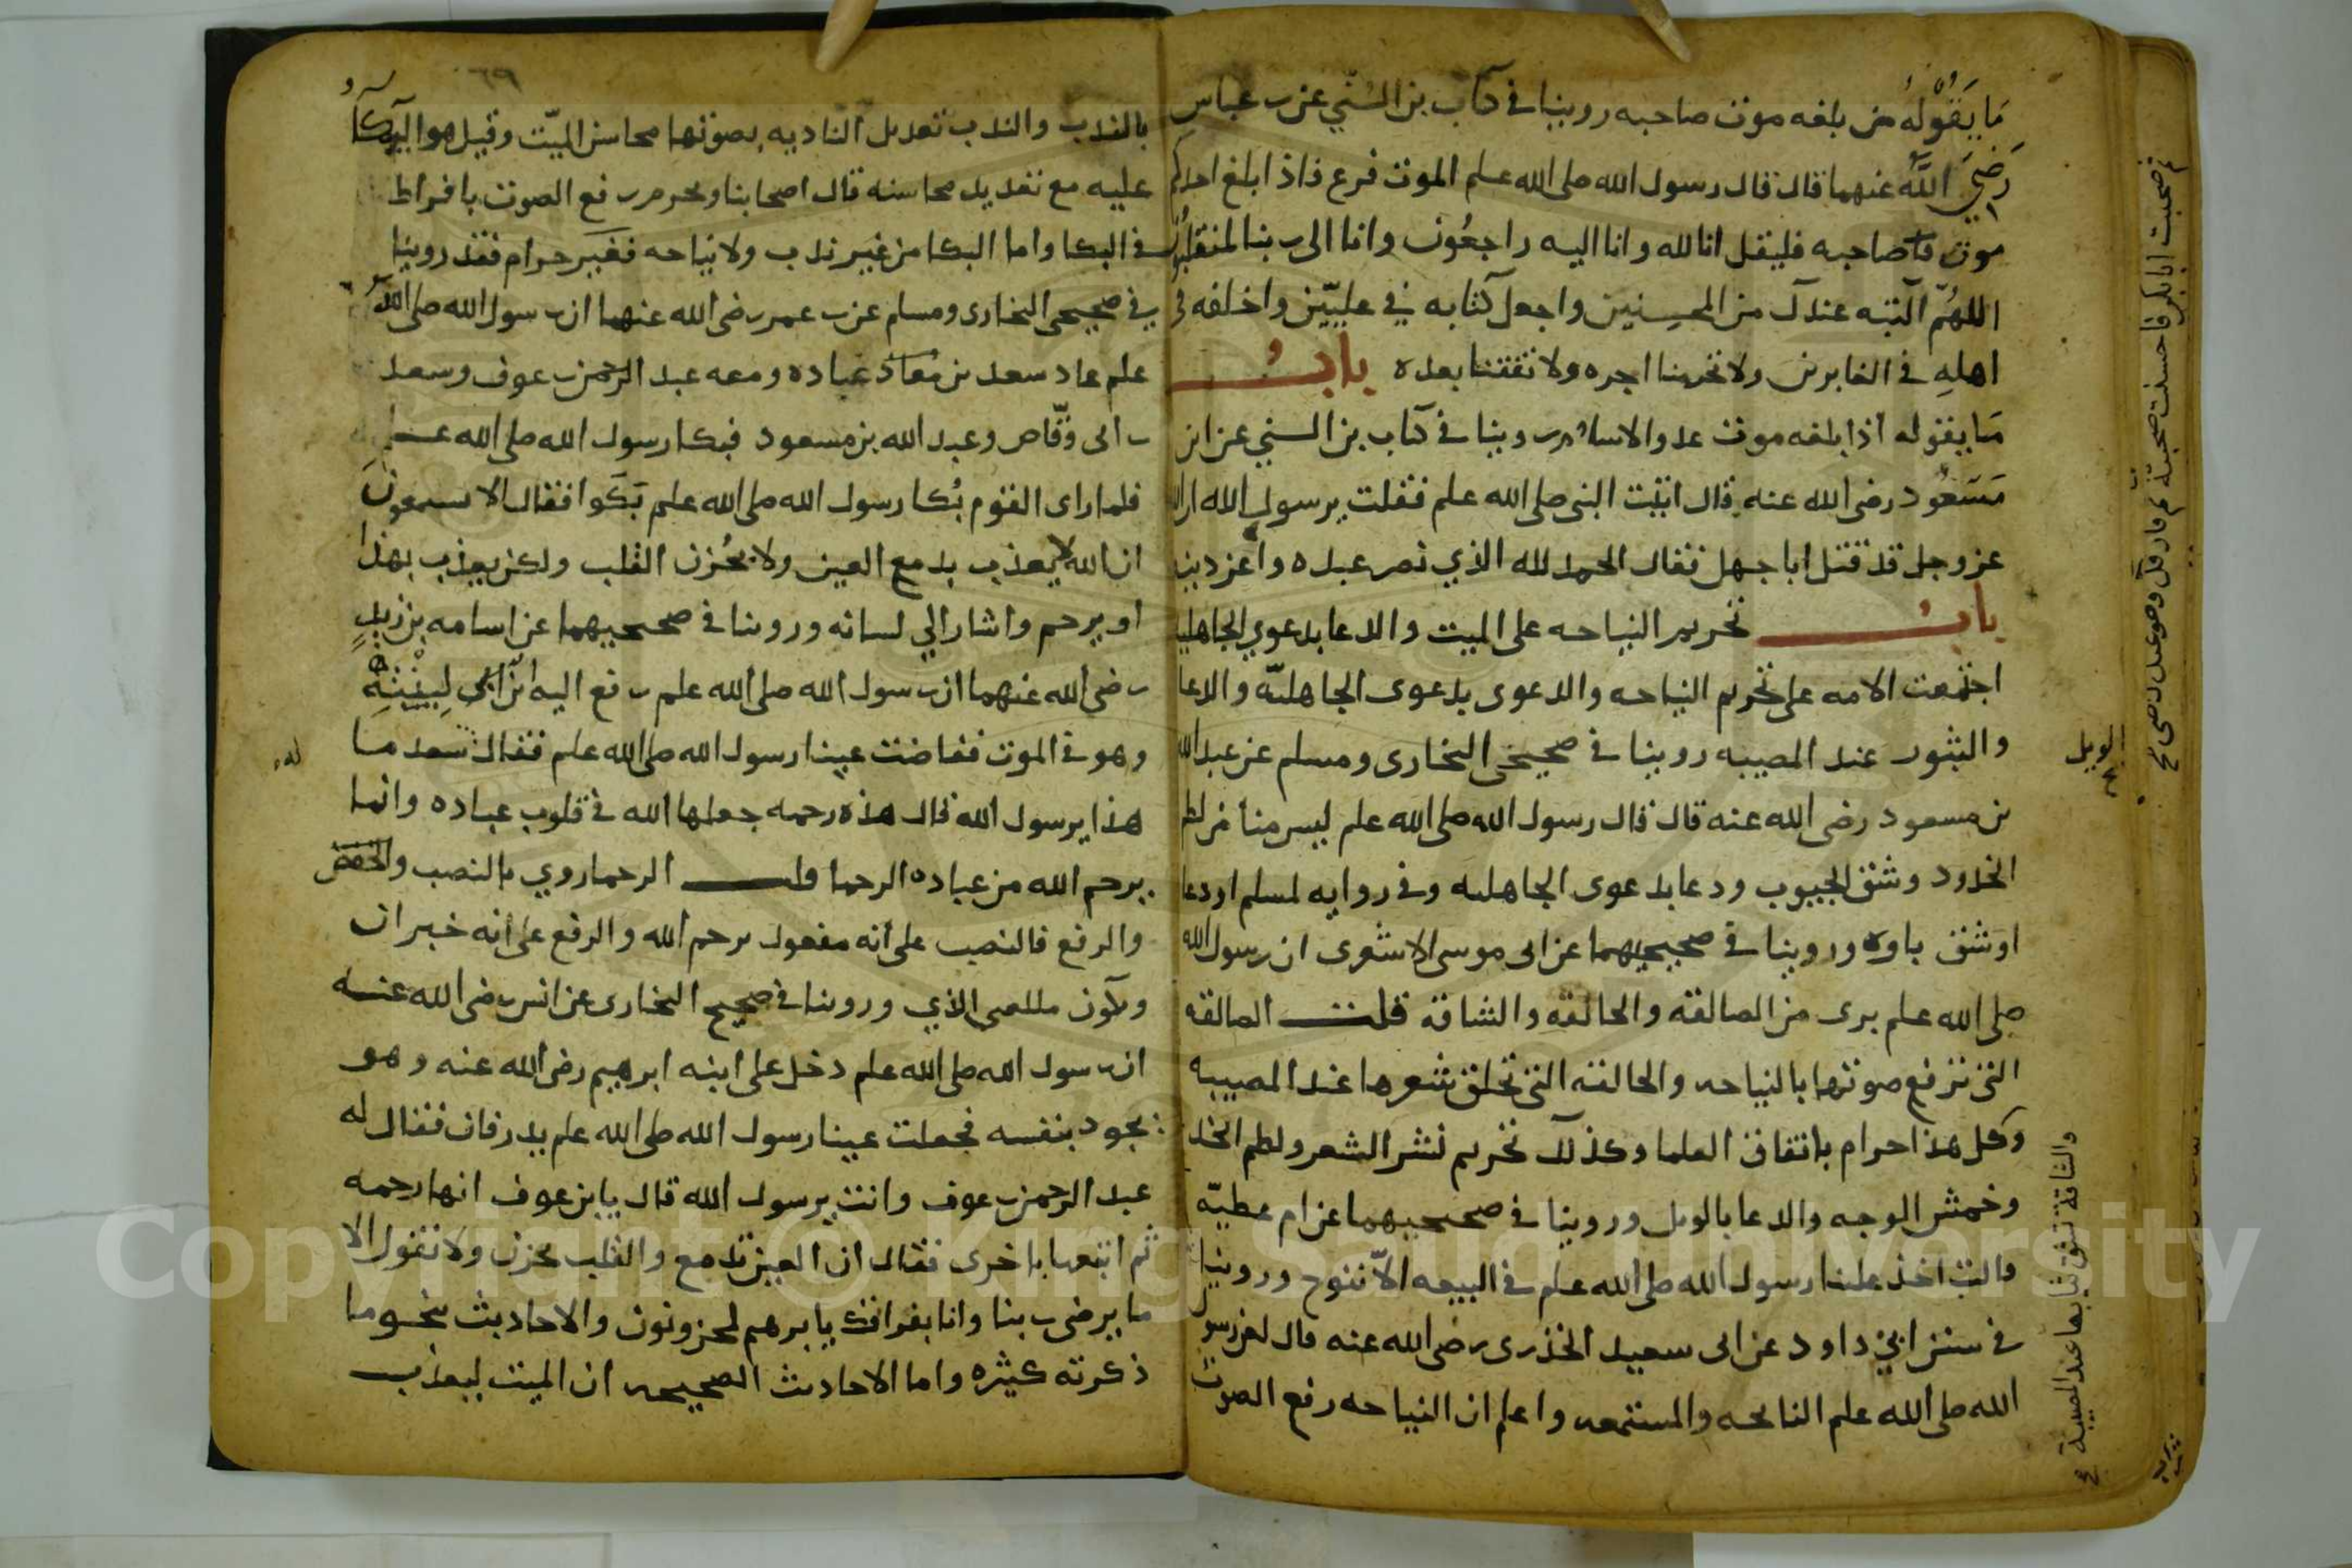 ما يَقُولُهُ من بلغه موت صاحبه روينا في كتاب بن السُّنّي عن بن عباسٍ
رَضِيَ اللَّه عنهما قال قال رسول الله صلى الله علم الموت فزع فاذا بلغ احدكم
موت صاحبه فليقل انا لله وانا اليه راجعُون وانا الى ربنا لمنقلبُون
اللهُمّ اكتبه عندك من المحسِنين واجعل كتابه في علِيّين واخلفه في
اهلهِ في الغابرين ولا تحرمنا اجره ولا تفتنا بعده بابُ
مَا يقوله اذا بلغه موت عدو الاسلام روينا في كتاب بن السني عن ابن
مَسَعُود رضى الله عنه قال اتيت النبى صلى الله علم فقلت يرسول الله ان الله
عز وجل قد قتل ابا جهل فقال الحمد لله الذي نصر عبده واعز دينه
بابُ تحريم النياحه على الميت والدعا بدعوي الجاهليه
اجتمعت الامه على تحريم النياحه والدعوى بدعوى الجاهليّه والدعا
والثبور عند المصيبه روينا في صحيحى البخارى ومسلم عن عبد الله
بن مسعود رضى الله عنه قال قال رسول الله صلى الله علم ليس منا من لطم
الخدود وشق الجيوب ودعا بدعوى الجاهليه وفي روايه لمسلم او دعا
او شق باوه وروينا في صحيحيهما عن ابى موسى الاشعرى ان رسول الله
صلى الله علم برى من الصالقه والحالقه والشاقه قلت الصالقه
التى ترفع صوتها بالنياحه والحالقه التى تحلق شعرها عند المصيبه
وكل هذا حرام باتفاق العلما وكذلك تحريم نشر الشعر ولطم الخد
وخمش الوجه والدعا بالويل وروينا في صحيحيهما عن ام عطيّه
قالت اخذ علينا رسول الله صلى الله علم في البيعه الاّ ننوح وروينا
في سنن ابي داود عن ابى سعيد الخدرى رضى الله عنه قال لعن رسول
الله صلى الله علم النايحه والمستمعه واعلم ان النياحه رفع الصوت
الويل
والشاقة تشق ثيابها عند المصيبة
صحبت ابا بكر فاحسنت صحبته ثم فارقك وهو عنك رضى
٦٩
بالندب والندب تعديل النادبه بصوتها محاسن الميّت وقيل هو البكا
عليه مع تعديد محاسنه قال اصحابنا ويحرم رفع الصوت بافراط
في البكا واما البكا من غير ندب ولا نياحه فغير حرام فقد روينا
في صحيحى البخارى ومسلم عن بن عمر رضى الله عنهما ان رسول الله صلى الله
علم عاد سعد بن عباده ومعه عبد الرحمن بن عوف وسعد
بن ابى وقّاص وعبد الله بن مسعود فبكا رسول الله صلى الله علم
فلما راى القوم بُكا رسول الله صلى الله علم بَكَوا فقال الا تسمعون
ان الله لا يعذب بدمع العين ولا بحُزن القلب ولكن يعذب بهذا
او يرحم واشار الي لسانه وروينا في صحيحيهما عن اسامه بن زيدٍ
رضى الله عنهما ان رسول الله صلى الله علم رفع اليه ابن ابنته
وهو في الموت ففاضت عينا رسول الله صلى الله علم فقال سعد ما
له
هذا يرسول الله قال هذه رحمه جعلها الله في قلوب عباده وانما
يرحم الله من عباده الرحما قلت الرحما روي بالنصب
والرفع فالنصب على أنه مفعول يرحم الله والرفع على أنه خبر ان
وتكون ما بمعنى الذي وروينا في صحيح البخارى عن انس رضى الله عنه
ان رسول الله صلى الله علم دخل على ابنه ابرهيم رضى الله عنه وهو
يجود بنفسه فجعلت عينا رسول الله صلى الله علم يدرفان فقال له
عبد الرحمن بن عوف وانت يرسول الله قال يا بن عوف انها رحمه
ثم اتبعها باخرى فقال ان العين تدمع والقلب يحزن ولا نقول الا
ما يرضى ربنا وانا بفراقك يابرهيم لمحزونون والاحاديث نحو ما
ذكرته كثيره واما الاحاديث الصحيحه ان الميت ليعذب
Copyright © King Saud University